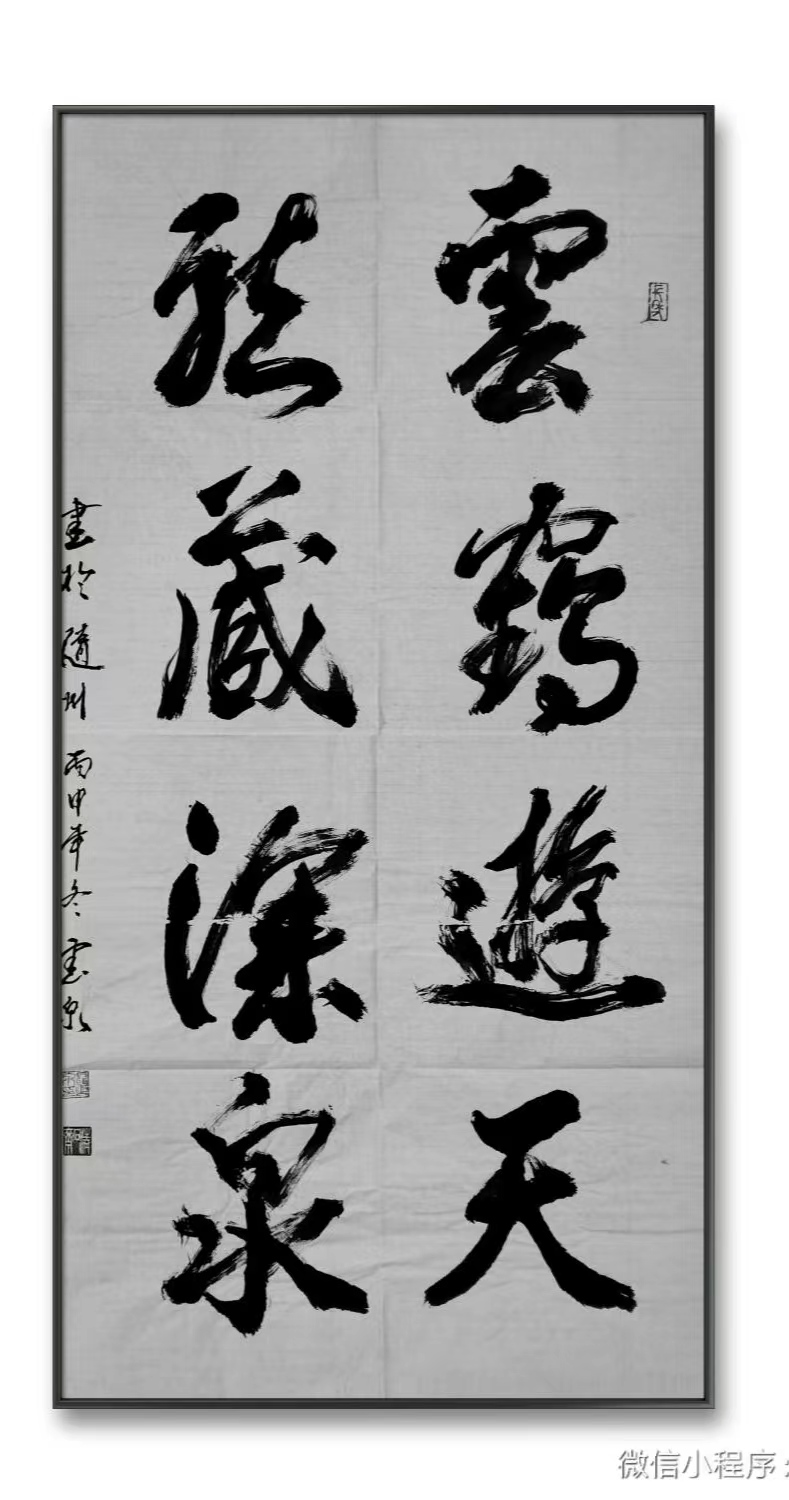 雲鶴遊天
龍藏深泉
書於隨州 丙申年冬 憲泉
微信小程序